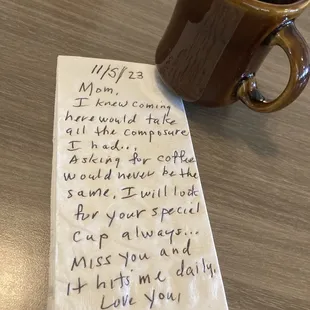 11/5/ 23
Mom,
I knew coming
here would take
all the composure
I had...
Asking for coffee
would never be the
same. I will look
for your special
cup always...
Miss you and
it hits me daily.
Love you,